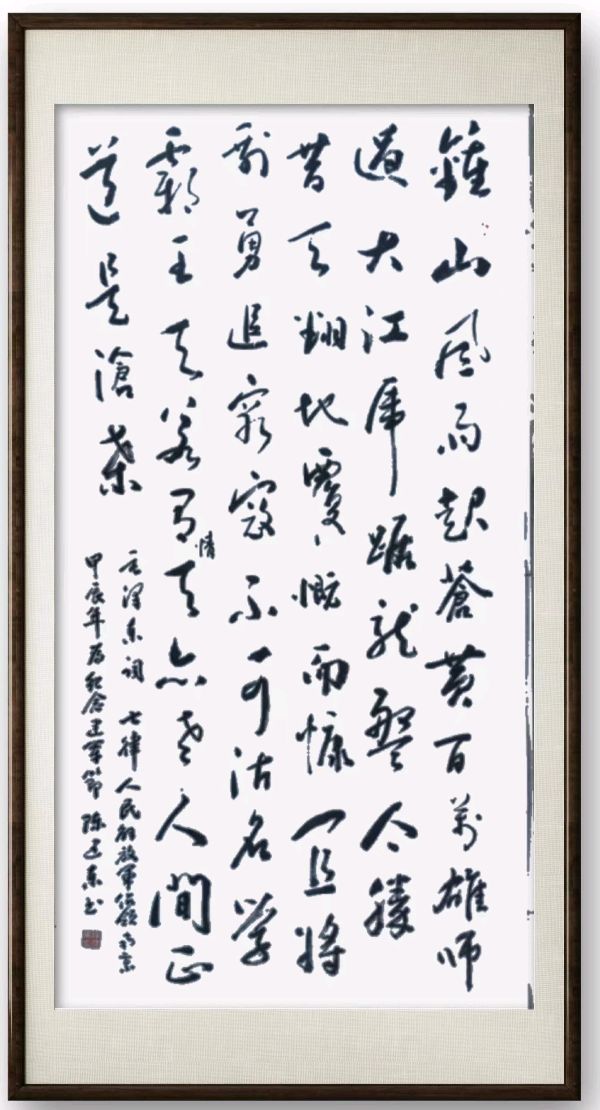 鍾山風雨起蒼黄百萬雄師
過大江虎踞龍盤今勝
昔天翻地覆慨而慷宜將
剩勇追窮寇不可沽名學
霸王天若有情天亦老人間正
道是滄桑
毛澤东词 七律人民解放軍佔領南京
甲辰年为纪念建军節 陈建东书